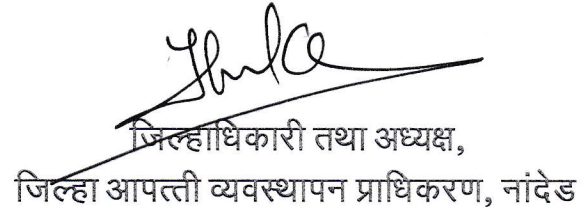 जिल्हाधिकारी तथा अध्यक्ष,
जिल्हा आपत्ती व्यवस्थापन प्राधिकरण, नांदेड